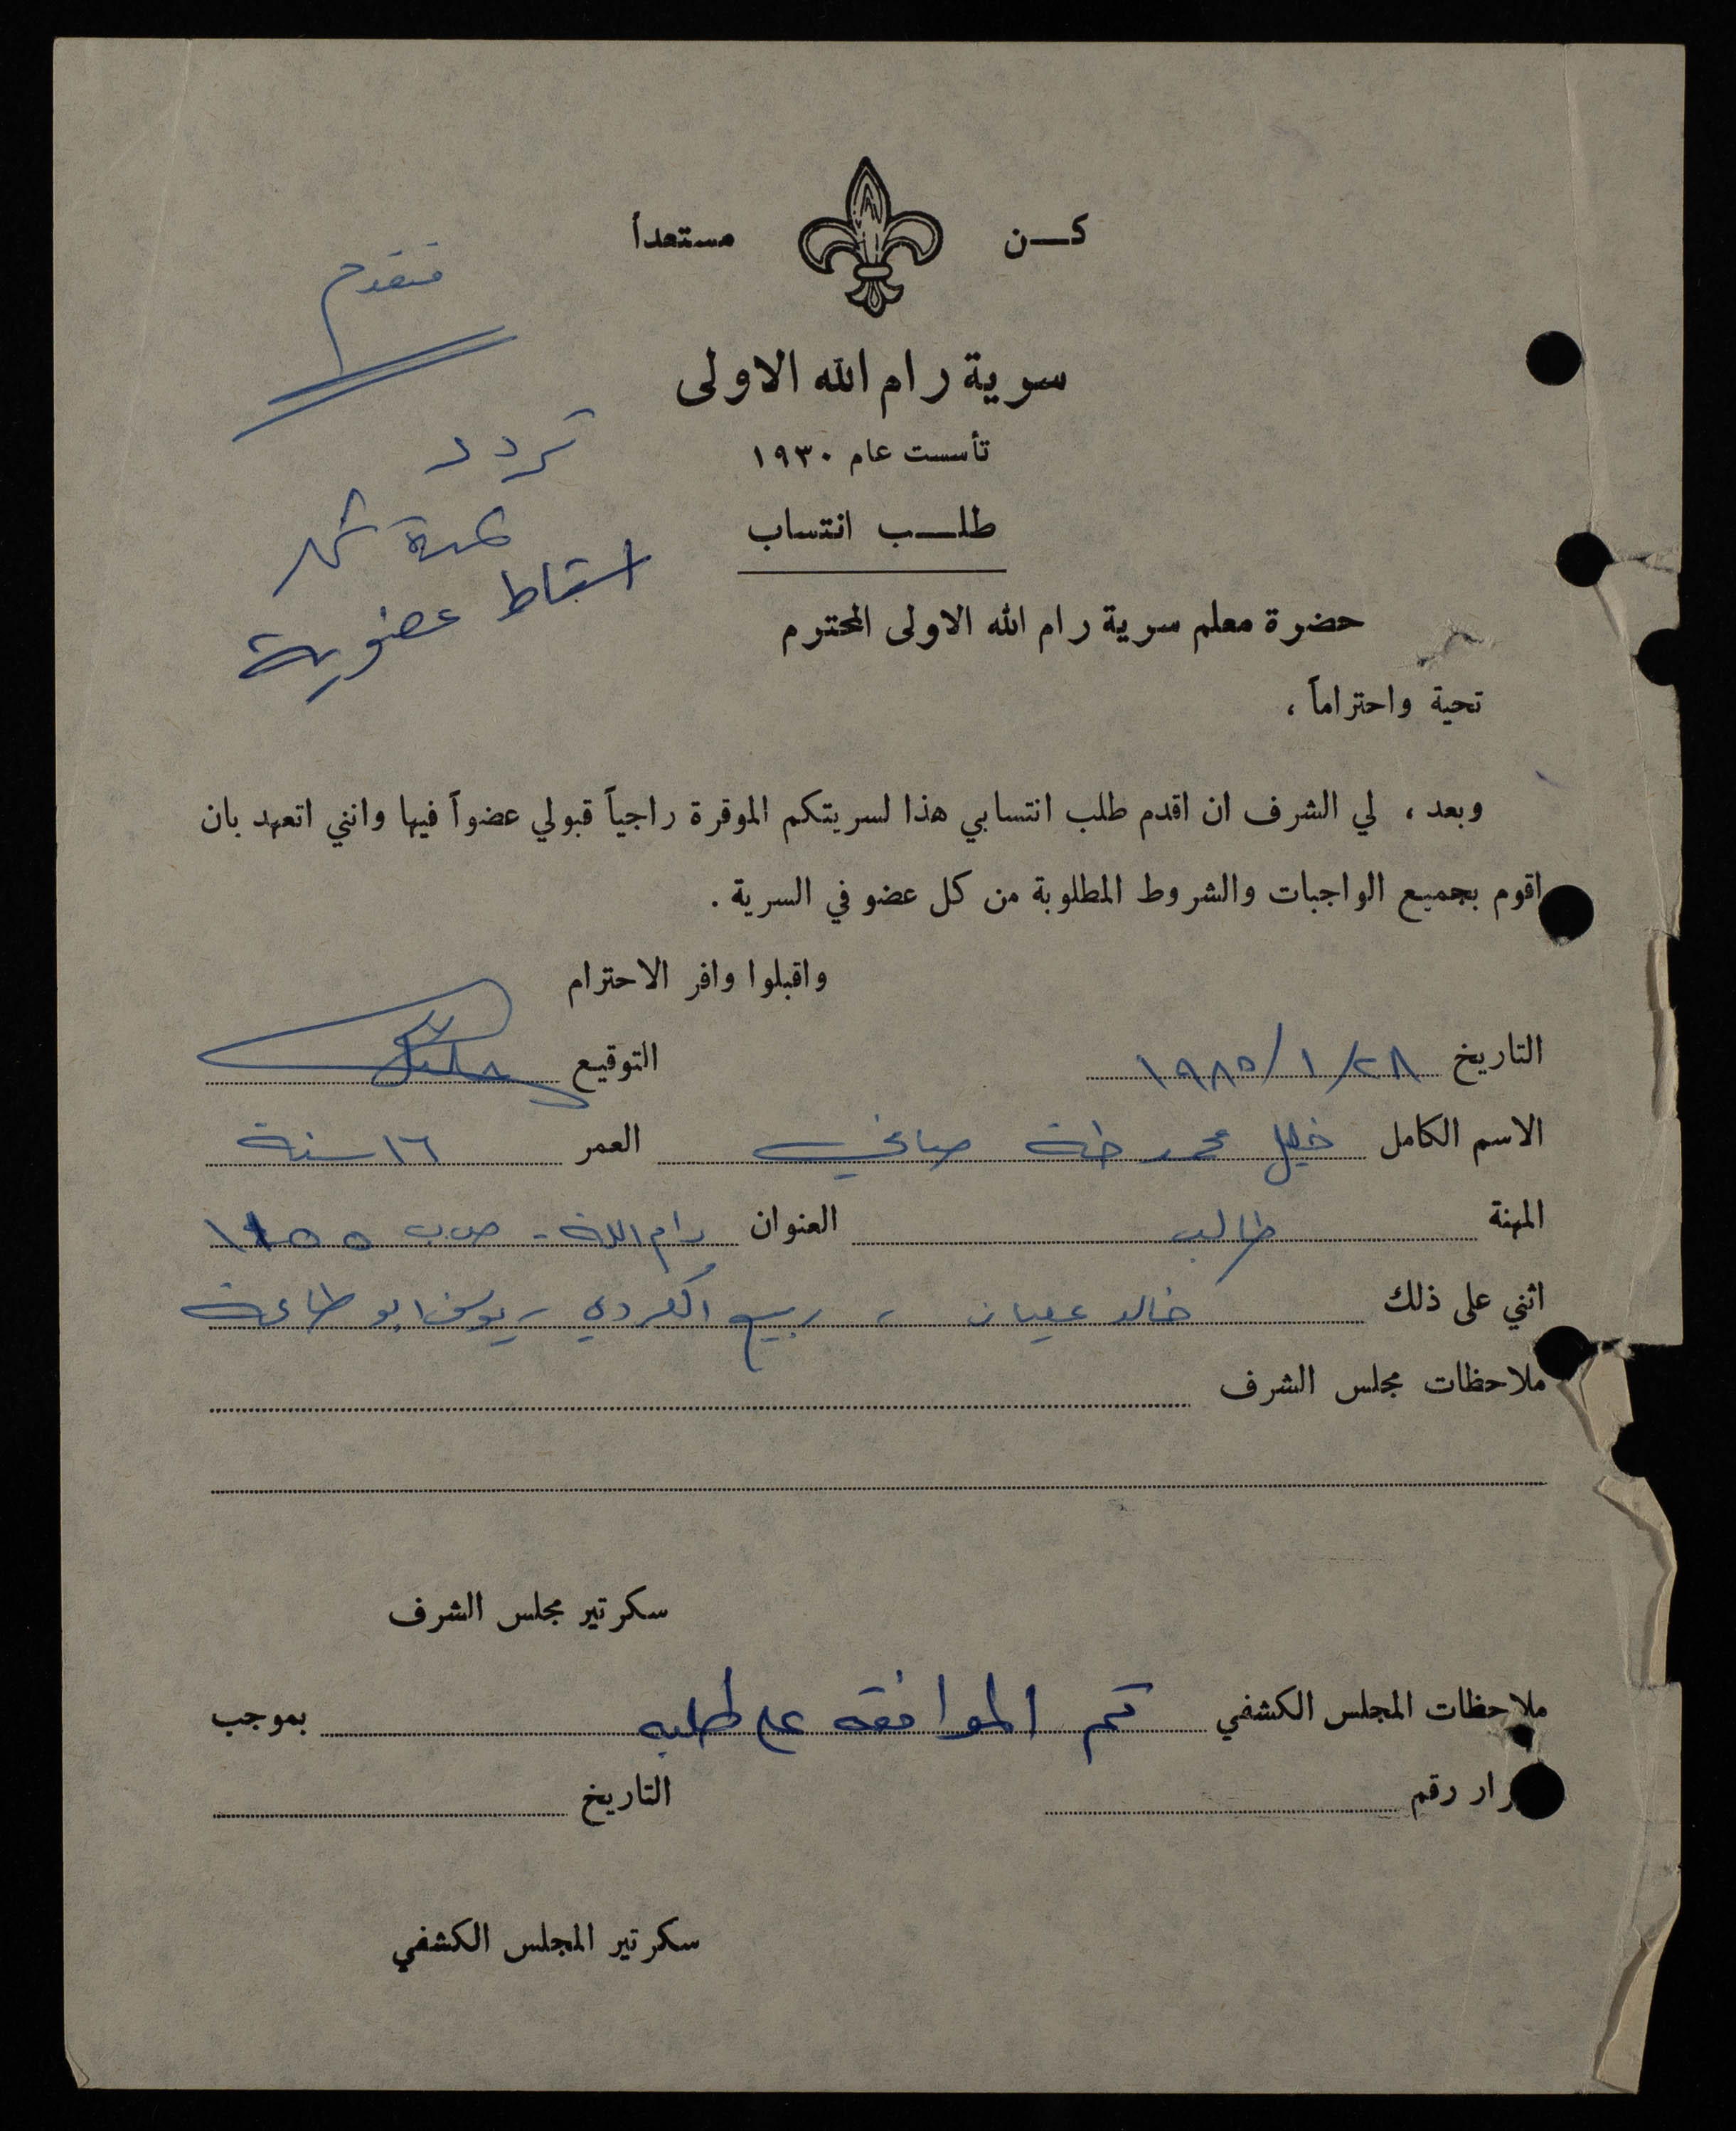 كـن مستعداً
متقدم
سرية رام الله الاولى
تردد
تأسست عام ١٩٣٠
لمدة شهر
طلـب انتساب
اسقاط عضوية
حضرة معلم سرية رام الله الاولى المحترم
تحية واحتراماً ،
وبعد ، لي الشرف ان اقدم طلب انتسابي هذا لسريتكم الموقرة راجياً قبولي عضواً فيها وانني اتعهد بان
اقوم بجميع الواجبات والشروط المطلوبة من كل عضو في السرية .
واقبلوا وافر الاحترام
التاريخ ١٩٨٥/١/٢٨ التوقيع
الاسم الكامل خليل محمد طه صافي العمر ١٦ سنة
المهنة طالب العنوان رام الله - ص ب
اثني على ذلك خالد عليان ، ربيع الكردي ، يوسف ابو طاعة
ملاحظات مجلس الشرف
سكرتير مجلس الشرف
ملاحظات المجلس الكشفي تم الموافقه على طلبه بموجب
رار رقم التاريخ
سكرتير المجلس الكشفي